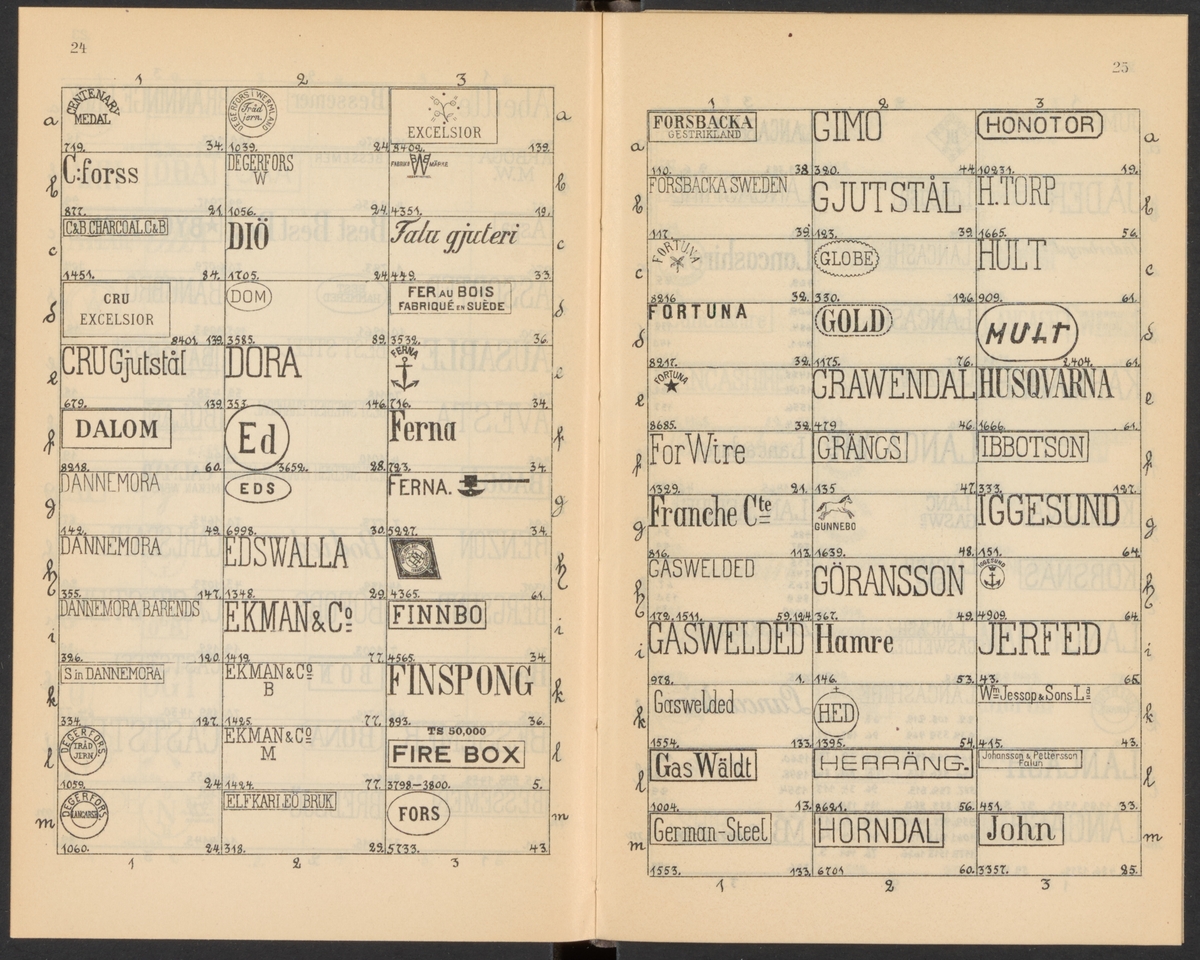 24
1 2 3
a
CENTENARY
MEDAL
719. 34.
DEGERFORS I WERMLAND
Tråd
jern.
1039. 24.
EXCELSIOR
8402. 139.
a
b
C:forss
877. 21.
DEGERFORS
W
1056. 24.
FABRIKS W MÄRKE
4351. 19.
b
c
C&B.CHARCOAL.C&B
1451. 84.
DIÖ
1705. 24.
Falu gjuteri
449. 33.
c
d
CRU
EXCELSIOR
8401. 139.
DOM
3585. 89.
FER AU BOIS
FABRIQUÉ EN SUÈDE
3532. 36.
d
e
CRU Gjutstål
679. 139.
DORA
353. 146.
FERNA
716. 34.
e
f
DALOM
8218. 60.
Ed
3652. 28.
Ferna
723. 34.
f
g
DANNEMORA
142. 49.
EDS
6998. 30.
FERNA.
5227. 34.
g
h
DANNEMORA
355. 147.
EDSWALLA
1348. 29.
4365. 61.
h
i
DANNEMORA BARENDS
326. 120.
EKMAN & Co
1419. 77.
FINNBO
4565. 34.
i
k
S in DANNEMORA
334. 127.
EKMAN & Co
B
1425. 77.
FINSPONG
893. 36.
k
l
DEGERFORS
TRÅD
JERN
1059. 24.
EKMAN & Co
M
1424. 77.
TS 50,000
FIRE BOX
3798–3800. 5.
l
m
DEGERFORS
LANCARSH.
1060. 24.
ELFKARLEÖ BRUK
318. 29.
FORS
5733. 43.
m
1 2 3
25
1 2 3
a
FORSBACKA
GESTRIKLAND
110. 38.
GIMO
320. 44.
HONOTOR
10231. 19.
a
b
FORSBACKA SWEDEN
117. 39.
GJUTSTÅL
123. 39.
H.TORP
1665. 56.
b
c
FORTUNA
8216 32.
GLOBE
330. 126.
HULT
909. 61.
c
d
FORTUNA
8217. 32.
GOLD
1175. 76.
MULT
2404. 61.
d
e
FORTUNA
8685. 32.
GRAWENDAL
479 46.
HUSQVARNA
1666. 61.
e
f
For Wire
1329. 21.
GRÄNGS
135 47.
IBBOTSON
333. 127.
f
g
Franche Cte
816. 113.
GUNNEBO
1639. 48.
IGGESUND
151. 64.
g
h
GASWELDED
172, 1511. 59,124.
GÖRANSSON
367. 49.
IGGESUND
4909. 64.
h
i
GASWELDED
978. 1.
Hamre
146. 53.
JERFED
43. 65.
i
k
Gaswelded
1554. 133.
HED
1395. 54.
Wm Jessop & Sons Ld
415. 43.
k
l
Gas Wäldt
1004. 13.
HERRÄNG.
8691. 56.
Johansson & Pettersson
Falun
451. 33.
l
m
German-Steel
1553. 133.
HORNDAL
6701 60.
John
3357. 25.
m
1 2 3